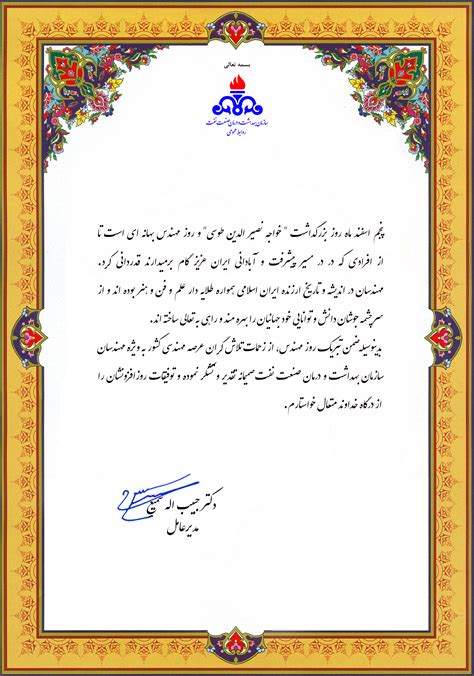 بسمه تعالی
سازمان بهداشت و درمان صنعت نفت
روابط عمومی
پنجم اسفند ماه روز بزرگداشت " خواجه نصیر الدین طوسی" و روز مهندس بهانه ای است تا
از افرادی که در در مسیر پیشرفت و آبادانی ایران عزیز گام برمیدارند قدردانی کرد.
مهندسان در اندیشه و تاریخ ارزنده ایران اسلامی همواره طلایه دار علم و فن و هنر بوده اند و از
سرچشمه جوشان دانش و توانایی خود جهانیان را بهره مند و راهی به تعالی ساخته اند.
بدینوسیله ضمن تبریک روز مهندس، از زحمات تلاش گران عرصه مهندسی کشور به ویژه مهندسان
سازمان بهداشت و درمان صنعت نفت صمیمانه تقدیر و تشکر نموده و توفیقات روز افزونشان را
از درگاه خداوند متعال خواستارم.
دکتر حبیب اله سمیع
مدیرعامل